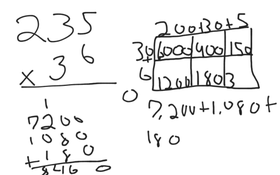 235
x 36
1
7200
1080
+ 180
8460
0
200+30+5
30 6000 900 150
6 1200 180 3
0
7,200+1,080+
180